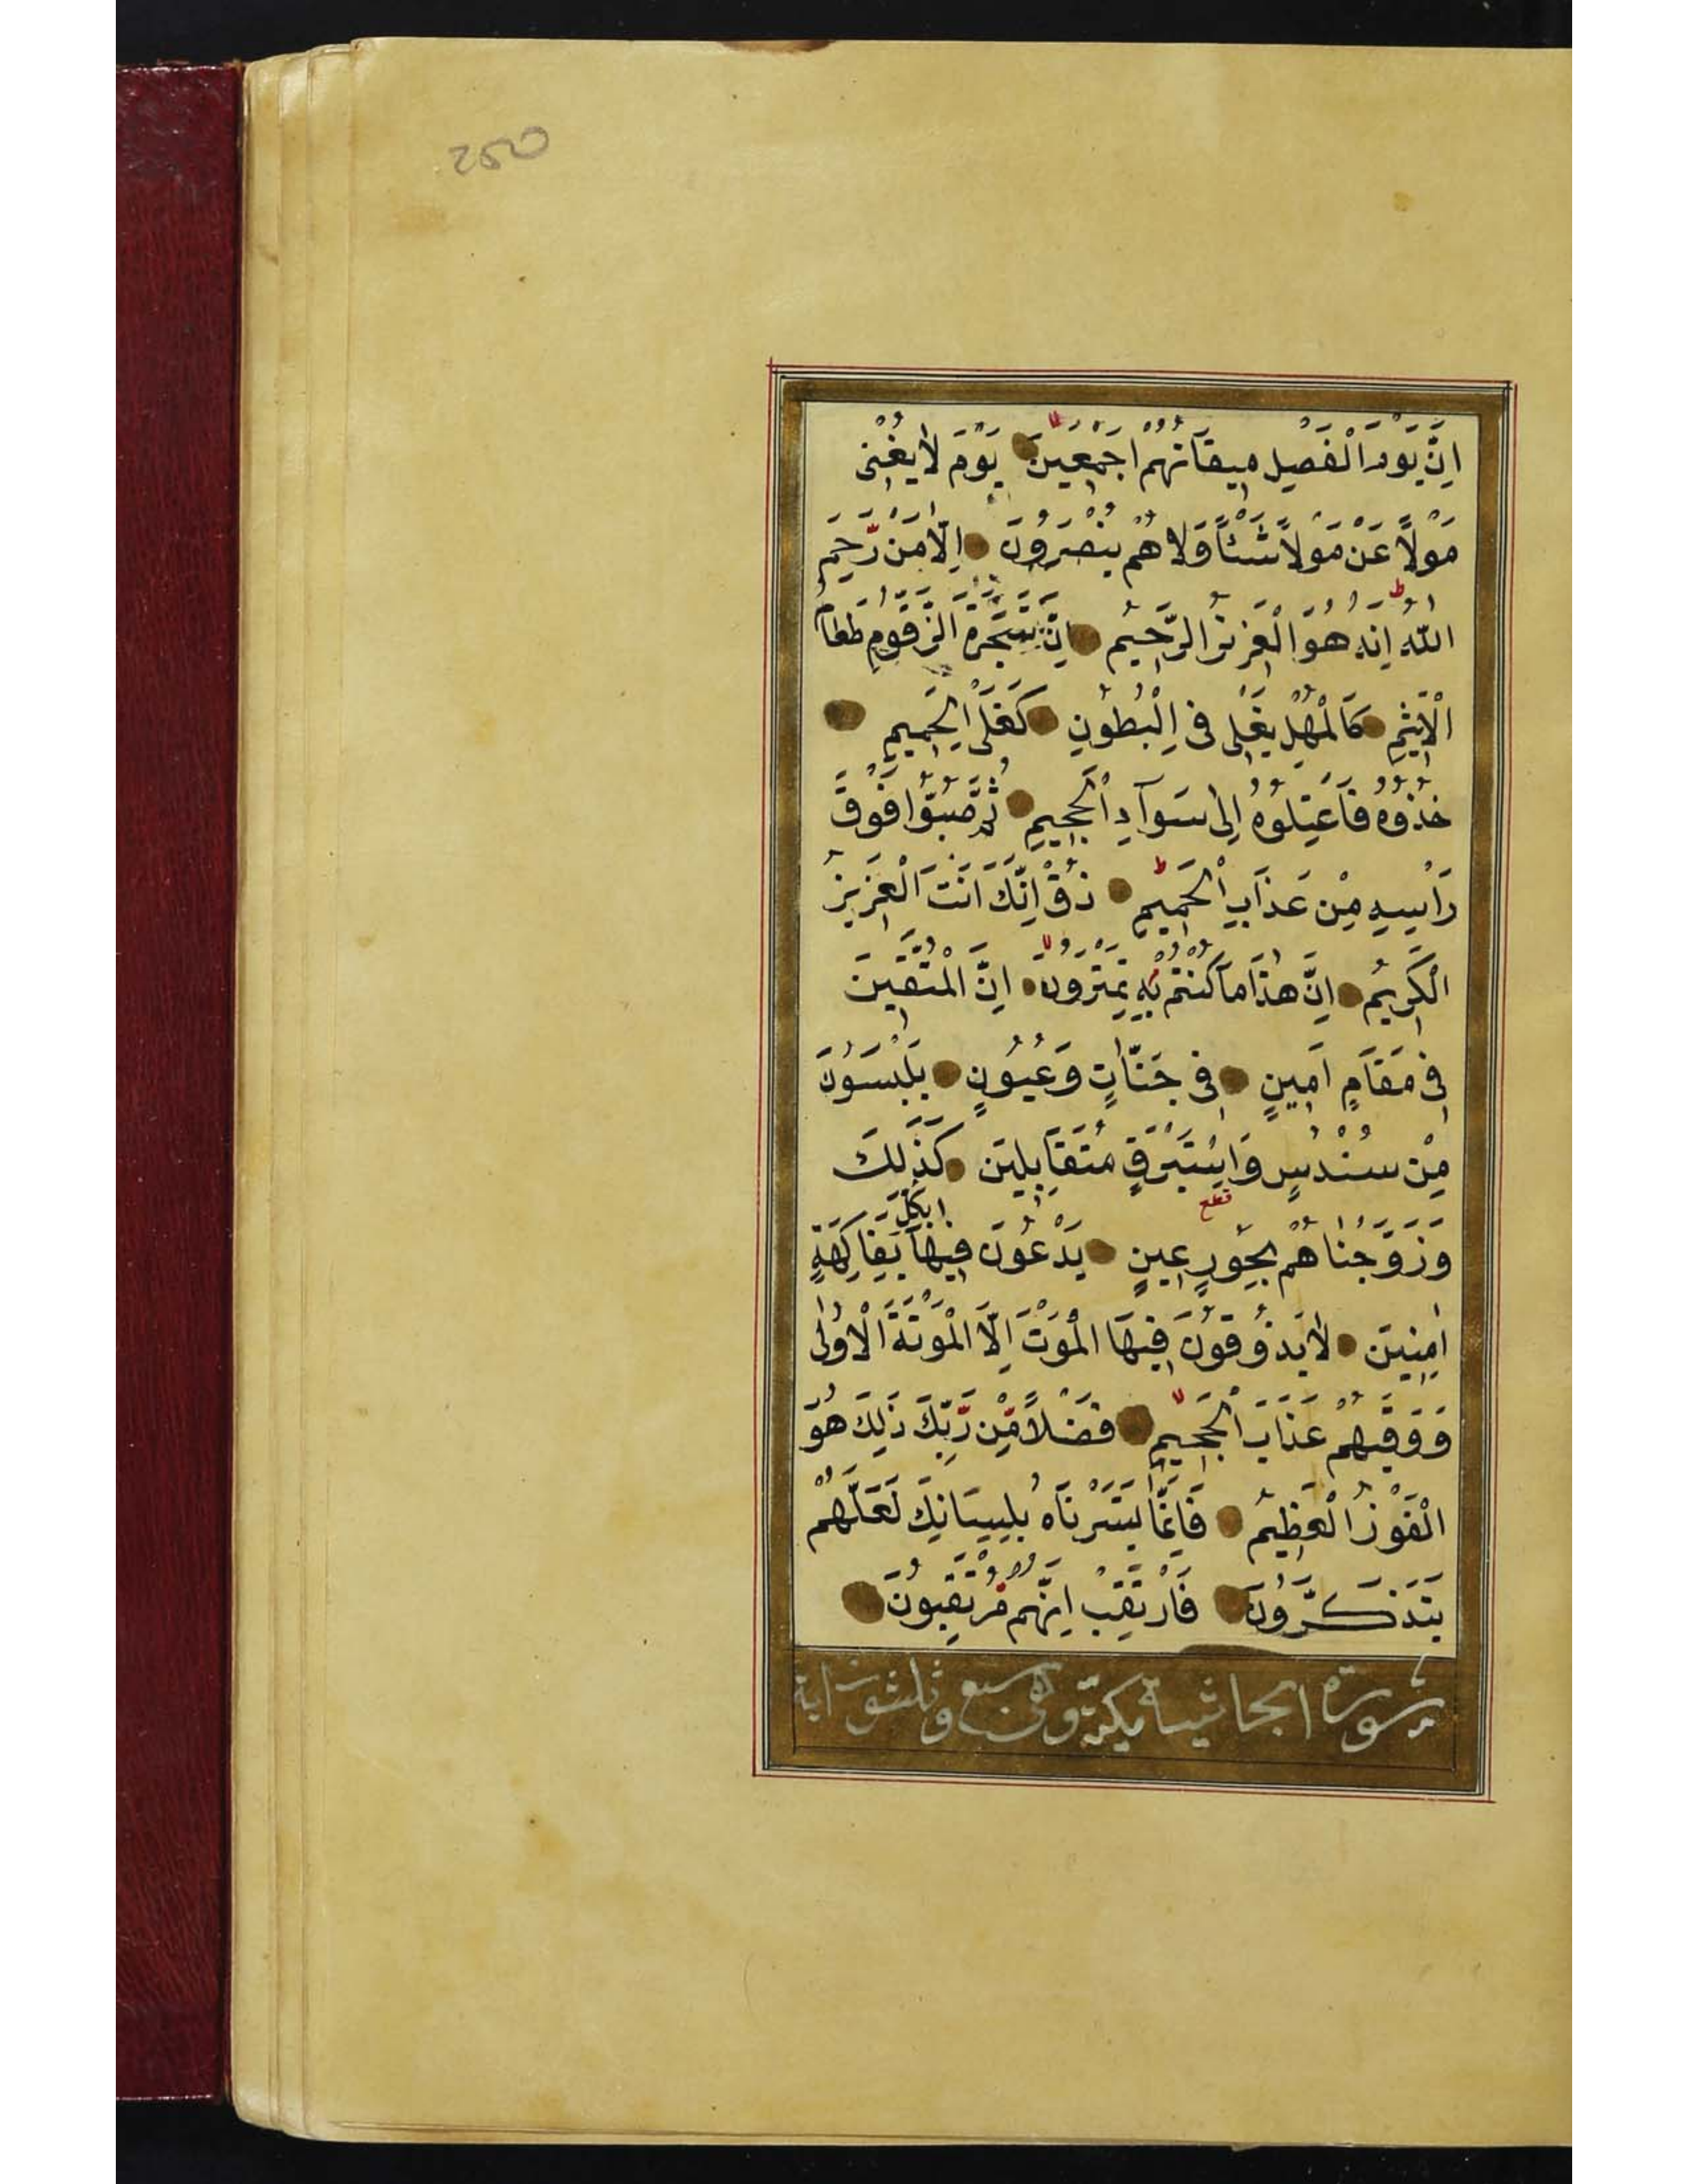 250
اِنَّ يَوْمَ الْفَصْلِ مِيقَاتُهُمْ اَجْمَعِينَ يَوْمَ لَا يُغْنِى
مَوْلًا عَنْ مَوْلًا شَيْئًا وَلَا هُمْ يُنْصَرُونَ اِلَّا مَنْ رَحِمَ
اللّٰهُ اِنَّهُ هُوَ الْعَزِيزُ الرَّحِيمُ اِنَّ شَجَرَةَ الزَّقُّومِ طَعَامُ
الْاَثِيمِ كَالْمُهْلِ يَغْلِى فِى الْبُطُونِ كَغَلْىِ الْحَمِيمِ
خُذُوهُ فَاعْتِلُوهُ اِلٰى سَوَآءِ الْجَحِيمِ ثُمَّ صُبُّوا فَوْقَ
رَاْسِهِ مِنْ عَذَابِ الْحَمِيمِ ذُقْ اِنَّكَ اَنْتَ الْعَزِيزُ
الْكَرِيمُ اِنَّ هٰذَا مَا كُنْتُمْ بِهِ تَمْتَرُونَ اِنَّ الْمُتَّقِينَ
فِى مَقَامٍ اَمِينٍ فِى جَنَّاتٍ وَعُيُونٍ يَلْبَسُونَ
مِنْ سُنْدُسٍ وَاِسْتَبْرَقٍ مُتَقَابِلِينَ كَذٰلِكَ
قطع
بِكُلِّ
وَزَوَّجْنَاهُمْ بِحُورٍ عِينٍ يَدْعُونَ فِيهَا بِفَاكِهَةٍ
اٰمِنِينَ لَا يَذُوقُونَ فِيهَا الْمَوْتَ اِلَّا الْمَوْتَةَ الْاُولٰى
وَوَقٰيهُمْ عَذَابَ الْجَحِيمِ فَضْلًا مِّنْ رَّبِّكَ ذٰلِكَ هُوَ
الْفَوْزُ الْعَظِيمُ فَاِنَّمَا يَسَّرْنَاهُ بِلِسَانِكَ لَعَلَّهُمْ
يَتَذَكَّرُونَ فَارْتَقِبْ اِنَّهُمْ مُرْتَقِبُونَ
سورة الجاثية مكية وهى سبع وثلثون اية